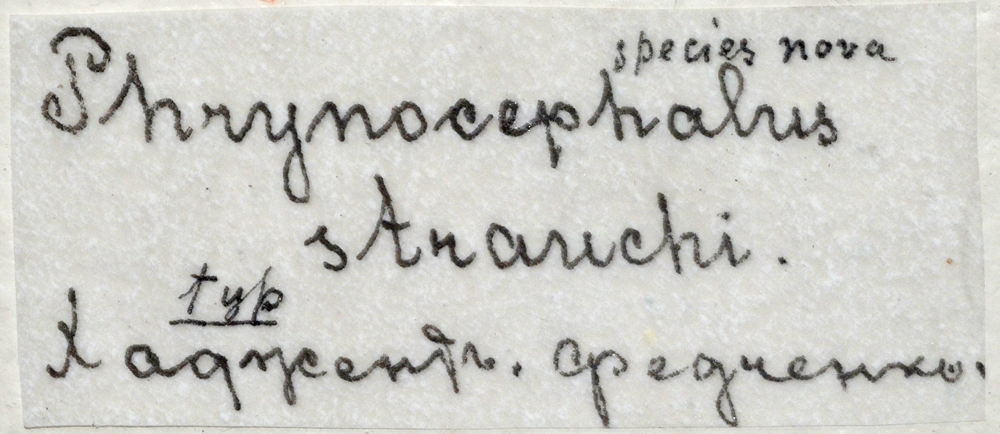 species nova
Phrynocephalus
strauchi.
typ
Хаджентъ. Федченко.